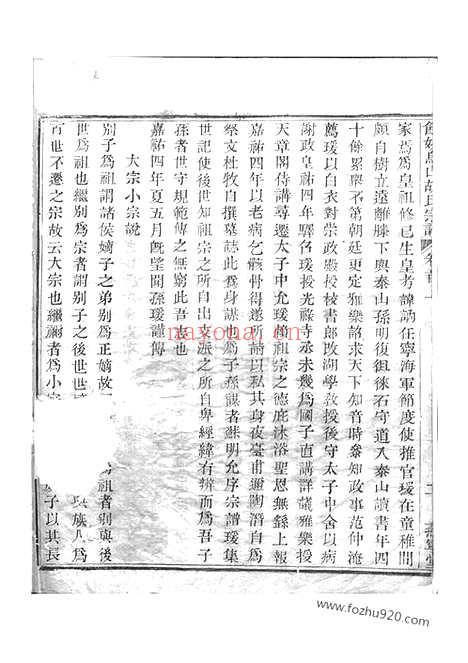 餘姚烏山胡氏宗譜 卷首上
家焉爲皇祖修已生皇考諱訥任寧海軍節度使推官瑗在童稚間
頗自樹立遠離膝下與泰山孫明復徂徠石守道入泰山讀書年四
十餘累舉不第朝廷更定雅樂詔求天下知音時參知政事范仲淹
薦瑗以白衣對崇政殿授校書郎改湖學教授後守太子中舍以病
謝政皇祐四年驛召瑗授光祿寺丞未幾爲國子直講詳議雅樂授
天章閣侍講尋遷太子中允瑗僅祖宗之德庇沐浴聖恩無繇上報
嘉祐四年以老病乞骸骨得遂所請以私其身夜臺甫邇陶潛自爲
祭文杜牧自撰墓誌此爲身謀也爲子孫謀者蘇明允序宗譜瑗集
世記使後世知祖宗之所自出支派之所自卑經緯有辨而爲吾子
孫者世守規範傳之無窮此吾志也
嘉祐四年夏五月旣望聞孫瑗謹傳
大宗小宗說
別子爲祖謂諸侯嫡子之弟別爲正嫡故
爲祖者別與後
世爲祖也繼別爲宗者謂別子之後世世
族人爲
百世不遷之宗故云大宗也繼禰者爲小宗
子以其長
nayona.cn
www.fozhu920.com